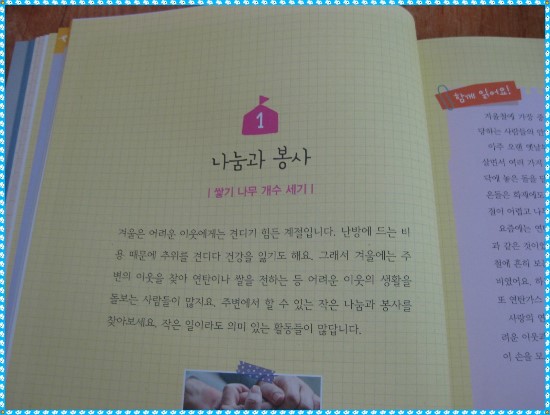 1
나눔과 봉사
| 쌓기 나무 개수 세기 |
겨울은 어려운 이웃에게는 견디기 힘든 계절입니다. 난방에 드는 비
용 때문에 추위를 견디다 건강을 잃기도 해요. 그래서 겨울에는 주
변의 이웃을 찾아 연탄이나 쌀을 전하는 등 어려운 이웃의 생활을
돌보는 사람들이 많지요. 주변에서 할 수 있는 작은 나눔과 봉사를
찾아보세요. 작은 일이라도 의미 있는 활동들이 많답니다.
함께 읽어요!
겨울철에 가장 중
당하는 사람들의 만
아주 오랜 옛날
살면서 여러 가지
덕에 놓은 돌을
온돌은 화재에도
철이 어렵고 나무
요즘에는 연탄
과 같은 장아
철에 흔히
비였어요. 하
또 연탄가스
사랑의 연
려운 이웃
이 손을 모